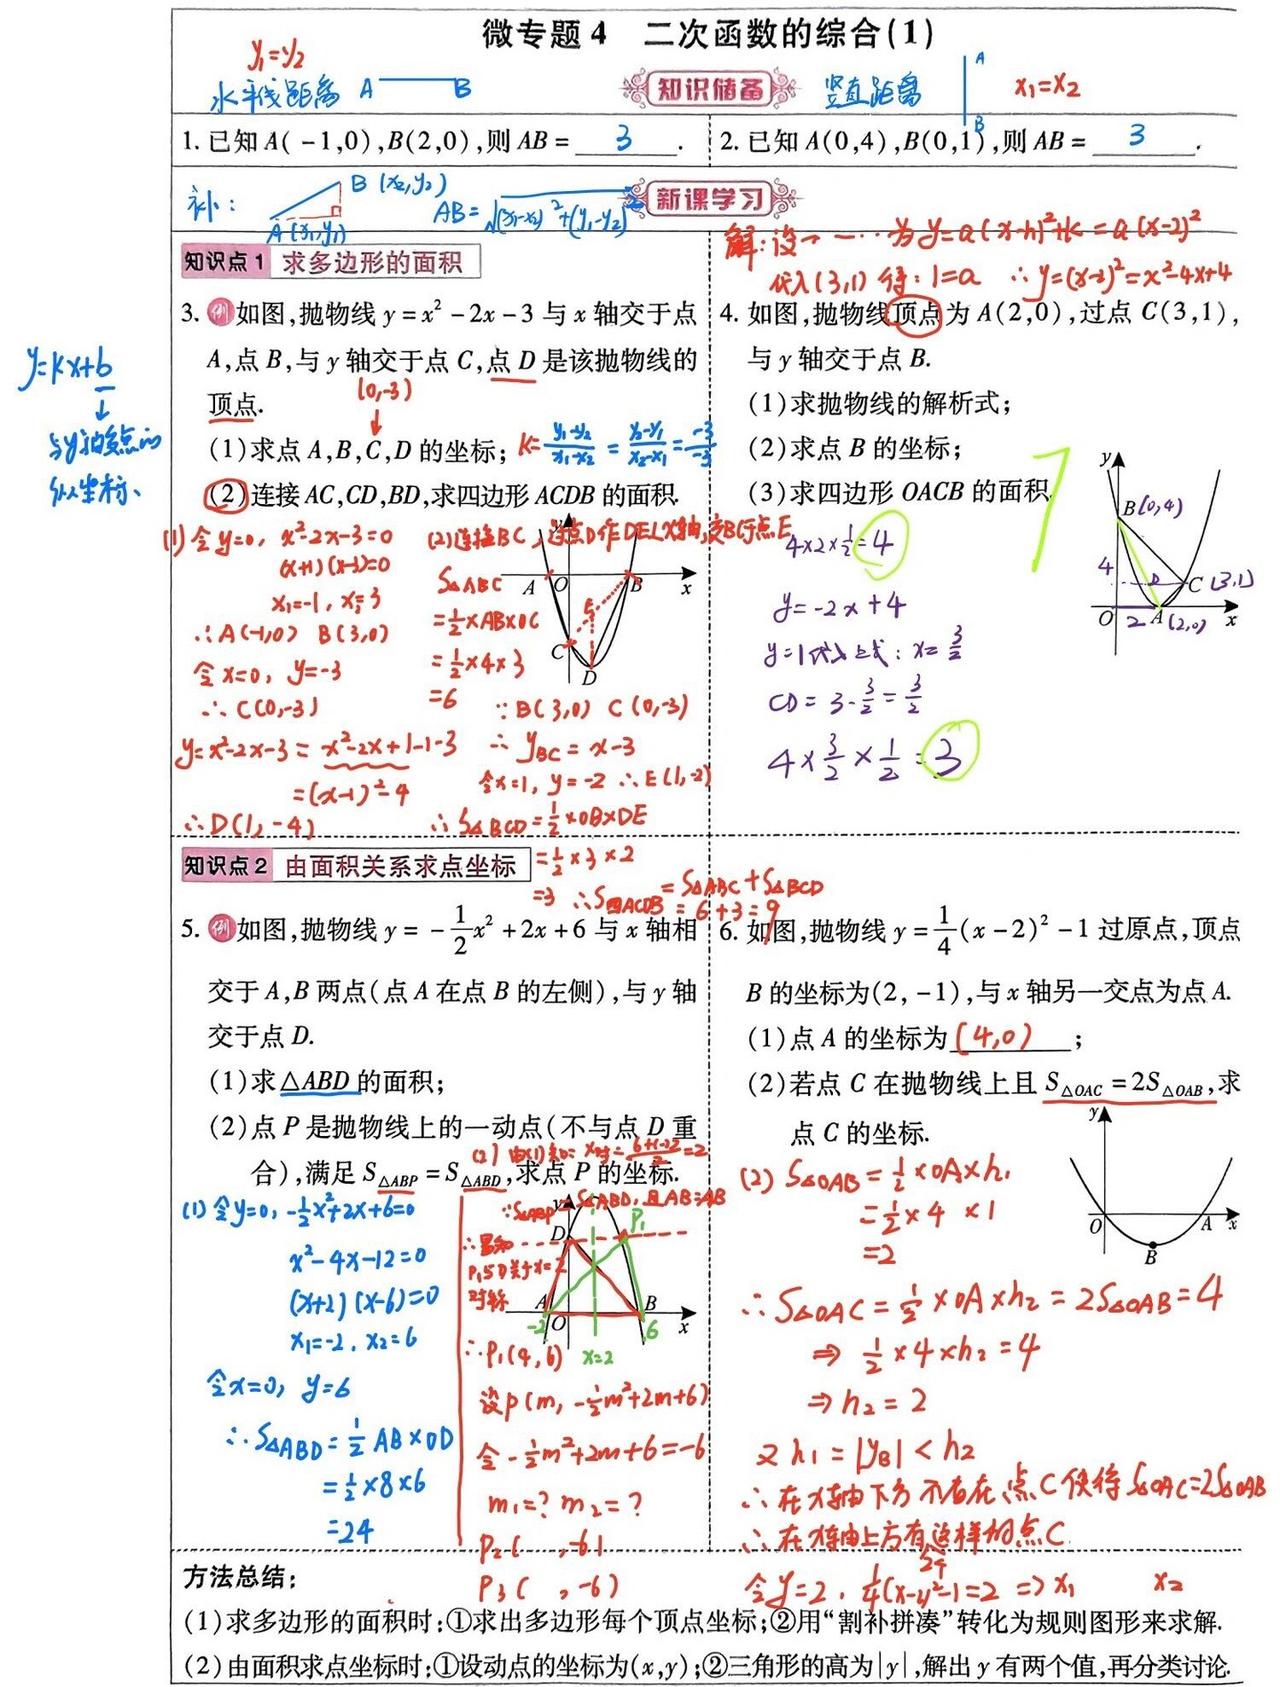 微专题4 二次函数的综合(1)
y₁=y₂
水平线距离 A B
知识储备
竖直距离 A B x₁=x₂
1. 已知 A(-1,0),B(2,0),则 AB= 3 .
2. 已知 A(0,4),B(0,1),则 AB= 3 .
补: A(x₁,y₁) B(x₂,y₂) AB=√(x₁-x₂)²+(y₁-y₂)²
新课学习
知识点1 求多边形的面积
3. 例 如图,抛物线 y=x²-2x-3 与 x 轴交于点
A,点 B,与 y 轴交于点 C,点 D 是该抛物线的
顶点.
(0,-3)
(1)求点 A,B,C,D 的坐标;
K=(y₁-y₂)/(x₁-x₂)=(y₂-y₁)/(x₂-x₁)=-3/-3
(2)连接 AC,CD,BD,求四边形 ACDB 的面积.
y=kx+b
↓
与y轴交点的
纵坐标、
(1)令y=0, x²-2x-3=0
(x+1)(x-3)=0
x₁=-1, x₂=3
∴A(-1,0) B(3,0)
令x=0, y=-3
∴C(0,-3)
y=x²-2x-3=x²-2x+1-1-3
=(x-1)²-4
∴D(1,-4)
(2)连接BC,过点D作DE⊥x轴,交BC于点E
S△ABC
=½×AB×OC
=½×4×3
=6
∵B(3,0) C(0,-3)
∴yBC=x-3
令x=1, y=-2 ∴E(1,-2)
∴S△BCD=½×OB×DE
=½×3×2
=3 ∴S四ACDB=S△ABC+S△BCD
=6+3=9
y A O B x E C D
解:设一一…为y=a(x-h)²+k=a(x-2)²
代入(3,1)得:1=a ∴y=(x-2)²=x²-4x+4
4. 如图,抛物线顶点为 A(2,0),过点 C(3,1),
与 y 轴交于点 B.
(1)求抛物线的解析式;
(2)求点 B 的坐标;
(3)求四边形 OACB 的面积.
4×2×½=4
y=-2x+4
y=1代入上式:x=3/2
CD=3-3/2=3/2
4×3/2×½=3
y B(0,4) 4 D C(3,1) O 2 A(2,0) x
知识点2 由面积关系求点坐标
5. 例 如图,抛物线 y=-½x²+2x+6 与 x 轴相
交于 A,B 两点(点 A 在点 B 的左侧),与 y 轴
交于点 D.
(1)求△ABD 的面积;
(2)点 P 是抛物线上的一动点(不与点 D 重
合),满足 S△ABP=S△ABD,求点 P 的坐标.
(1)令y=0, -½x²+2x+6=0
x²-4x-12=0
(x+2)(x-6)=0
x₁=-2, x₂=6
令x=0, y=6
∴S△ABD=½AB×OD
=½×8×6
=24
(2)由(1)知: x对=(6+(-2))/2=2
∵S△ABP=S△ABD,且AB=AB
∴易知
P₁与D关于x=2
对称
∴P₁(4,6)
设P(m,-½m²+2m+6)
令-½m²+2m+6=-6
m₁=? m₂=?
P₂( ,-6)
P₃( ,-6)
y D P₁ A O B x -2 6 x=2
6. 如图,抛物线 y=¼(x-2)²-1 过原点,顶点
B 的坐标为(2,-1),与 x 轴另一交点为点 A.
(1)点 A 的坐标为 (4,0) ;
(2)若点 C 在抛物线上且 S△OAC=2S△OAB,求
点 C 的坐标.
y O A x B
(2) S△OAB=½×OA×h₁
=½×4×1
=2
∴S△OAC=½×OA×h₂=2S△OAB=4
⇒½×4×h₂=4
⇒h₂=2
又h₁=|yB|<h₂
∴在x轴下方不存在点C使得S△OAC=2S△OAB
∴在x轴上方有这样的点C
令y=2, ¼(x-2)²-1=2 ⇒x₁ x₂
方法总结:
(1)求多边形的面积时:①求出多边形每个顶点坐标;②用“割补拼凑”转化为规则图形来求解.
(2)由面积求点坐标时:①设动点的坐标为(x,y);②三角形的高为|y|,解出 y 有两个值,再分类讨论.